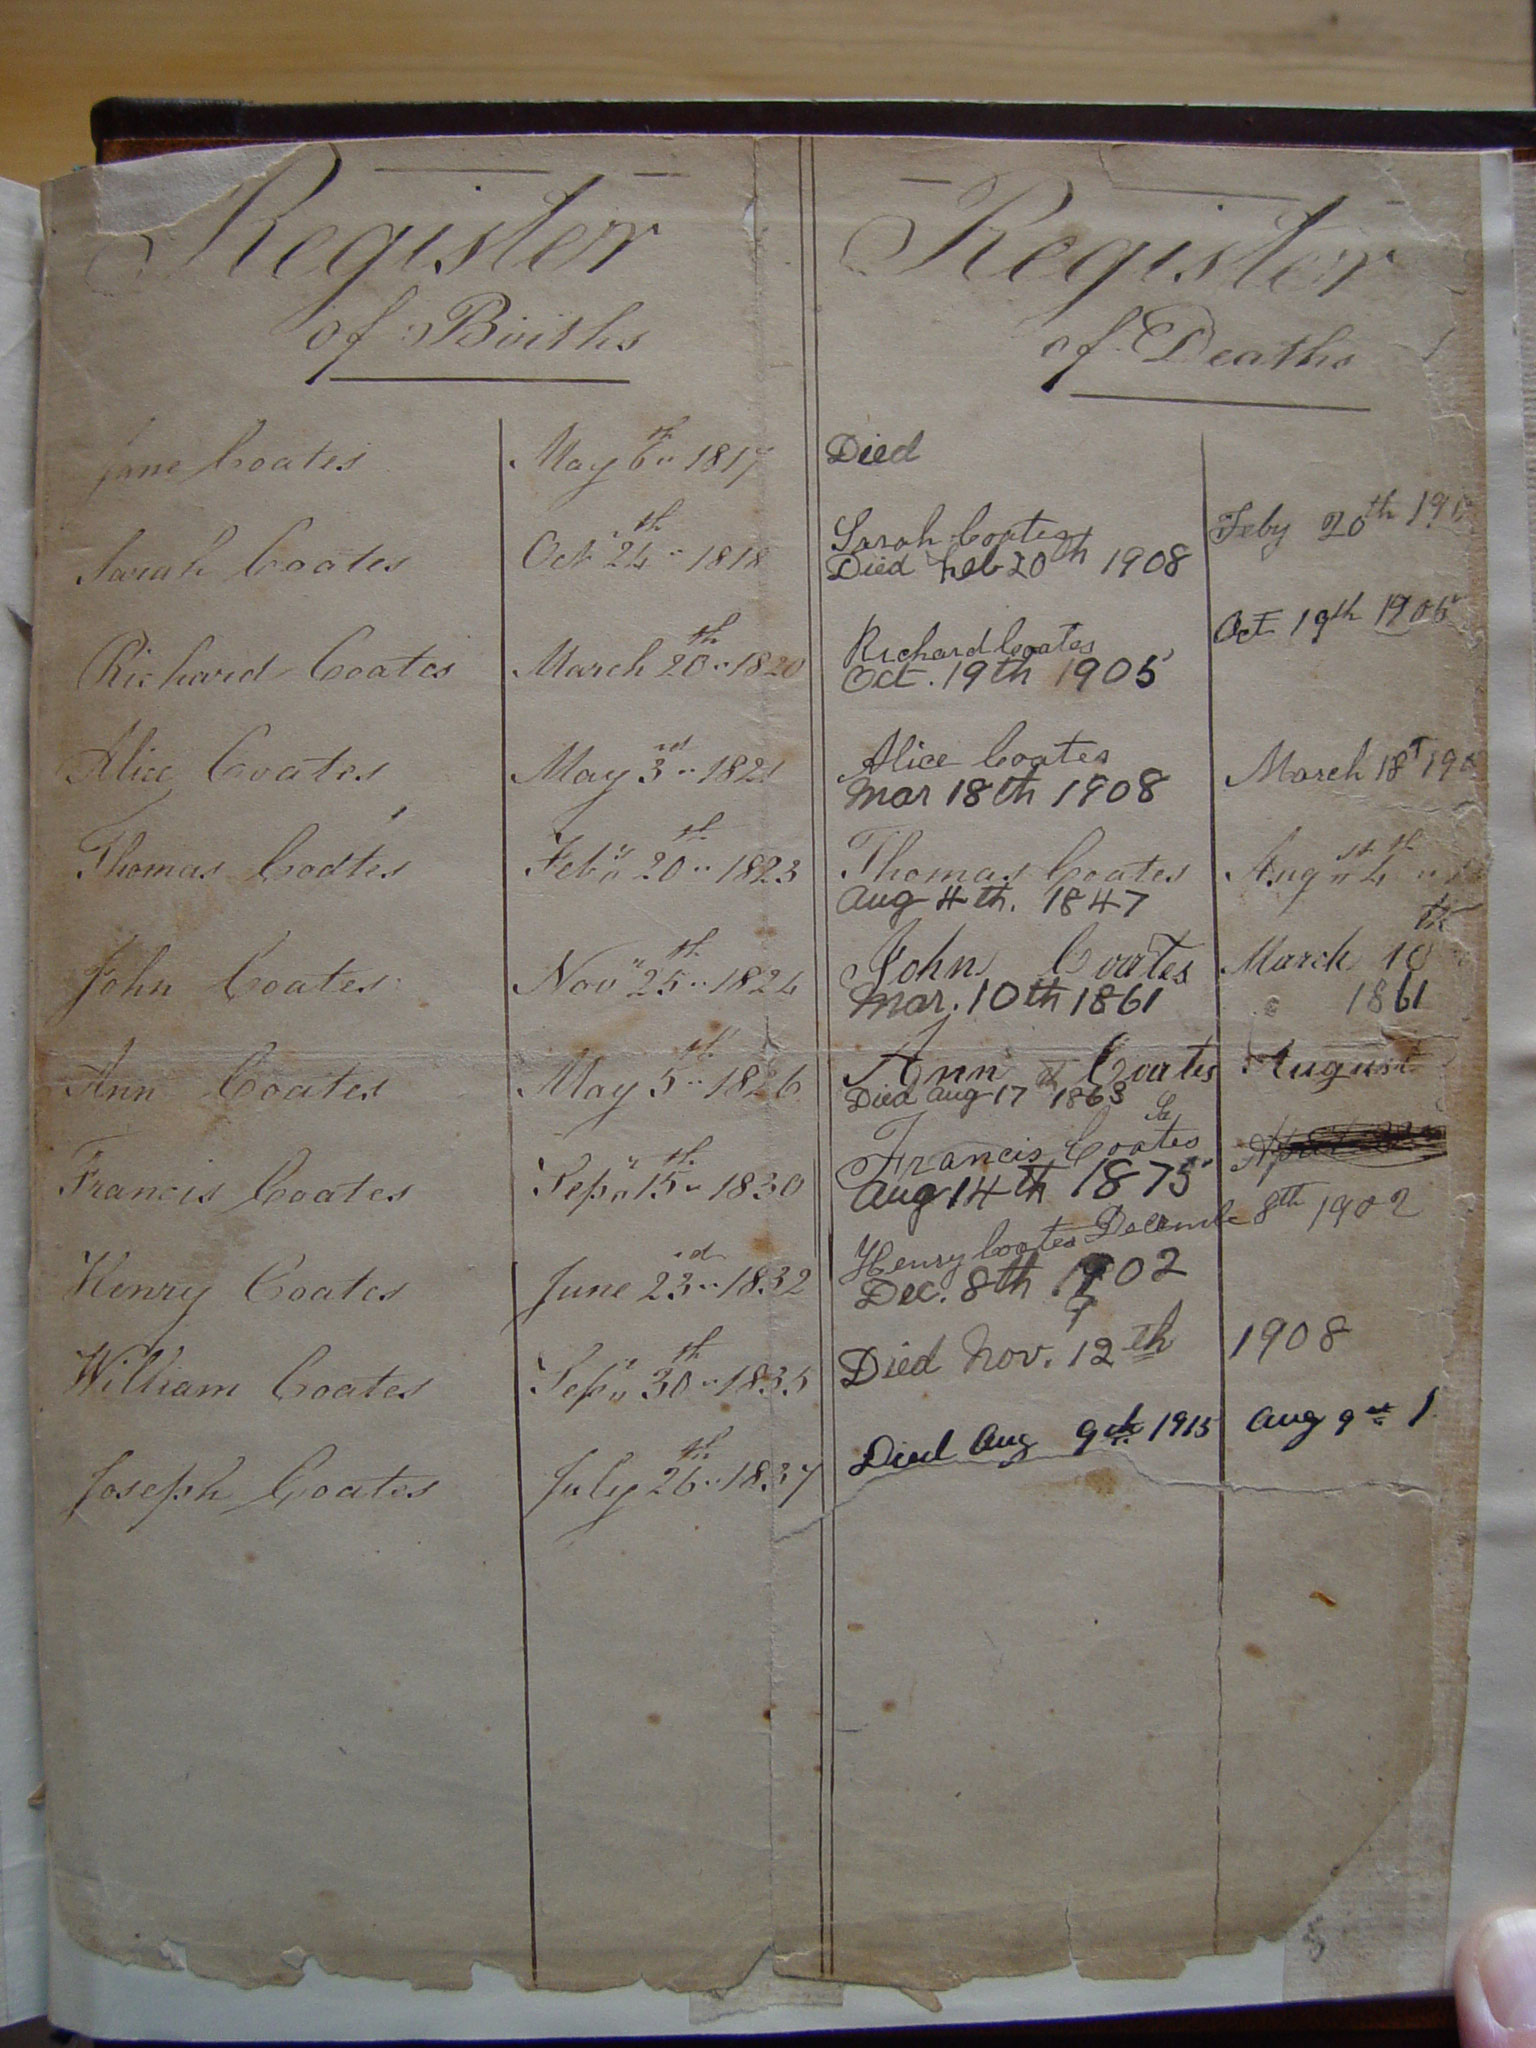 Register
of Births
Jane Coates May 6th 1817
Sarah Coates Oct 24th 1818
Richard Coates March 20th 1820
Alice Coates May 3rd 1821
Thomas Coates Feby 20th 1823
John Coates Novr 25th 1824
Ann Coates May 5th 1826
Francis Coates Sepr 15th 1830
Henry Coates June 23rd 1832
William Coates Sepr 30th 1835
Joseph Coates July 26th 1837
Register
of Deaths
Died
Sarah Coates Feby 20th
Died Feb 20th 1908
Richard Coates Oct 19th 1905
Oct. 19th 1905
Alice Coates March 18
Mar 18th 1908
Thomas Coates Augst 4th
Aug 4th. 1847
John Coates March 10th
Mar. 10th 1861 1861
Ann Coates August
Died Aug 17th 1863
Francis Coates
Aug 14th 1875
Henry Coates Decembe 8th 1902
Dec. 8th 1902
Died Nov. 12th 1908
Died Aug 9th 1915 Aug 9th 1
5